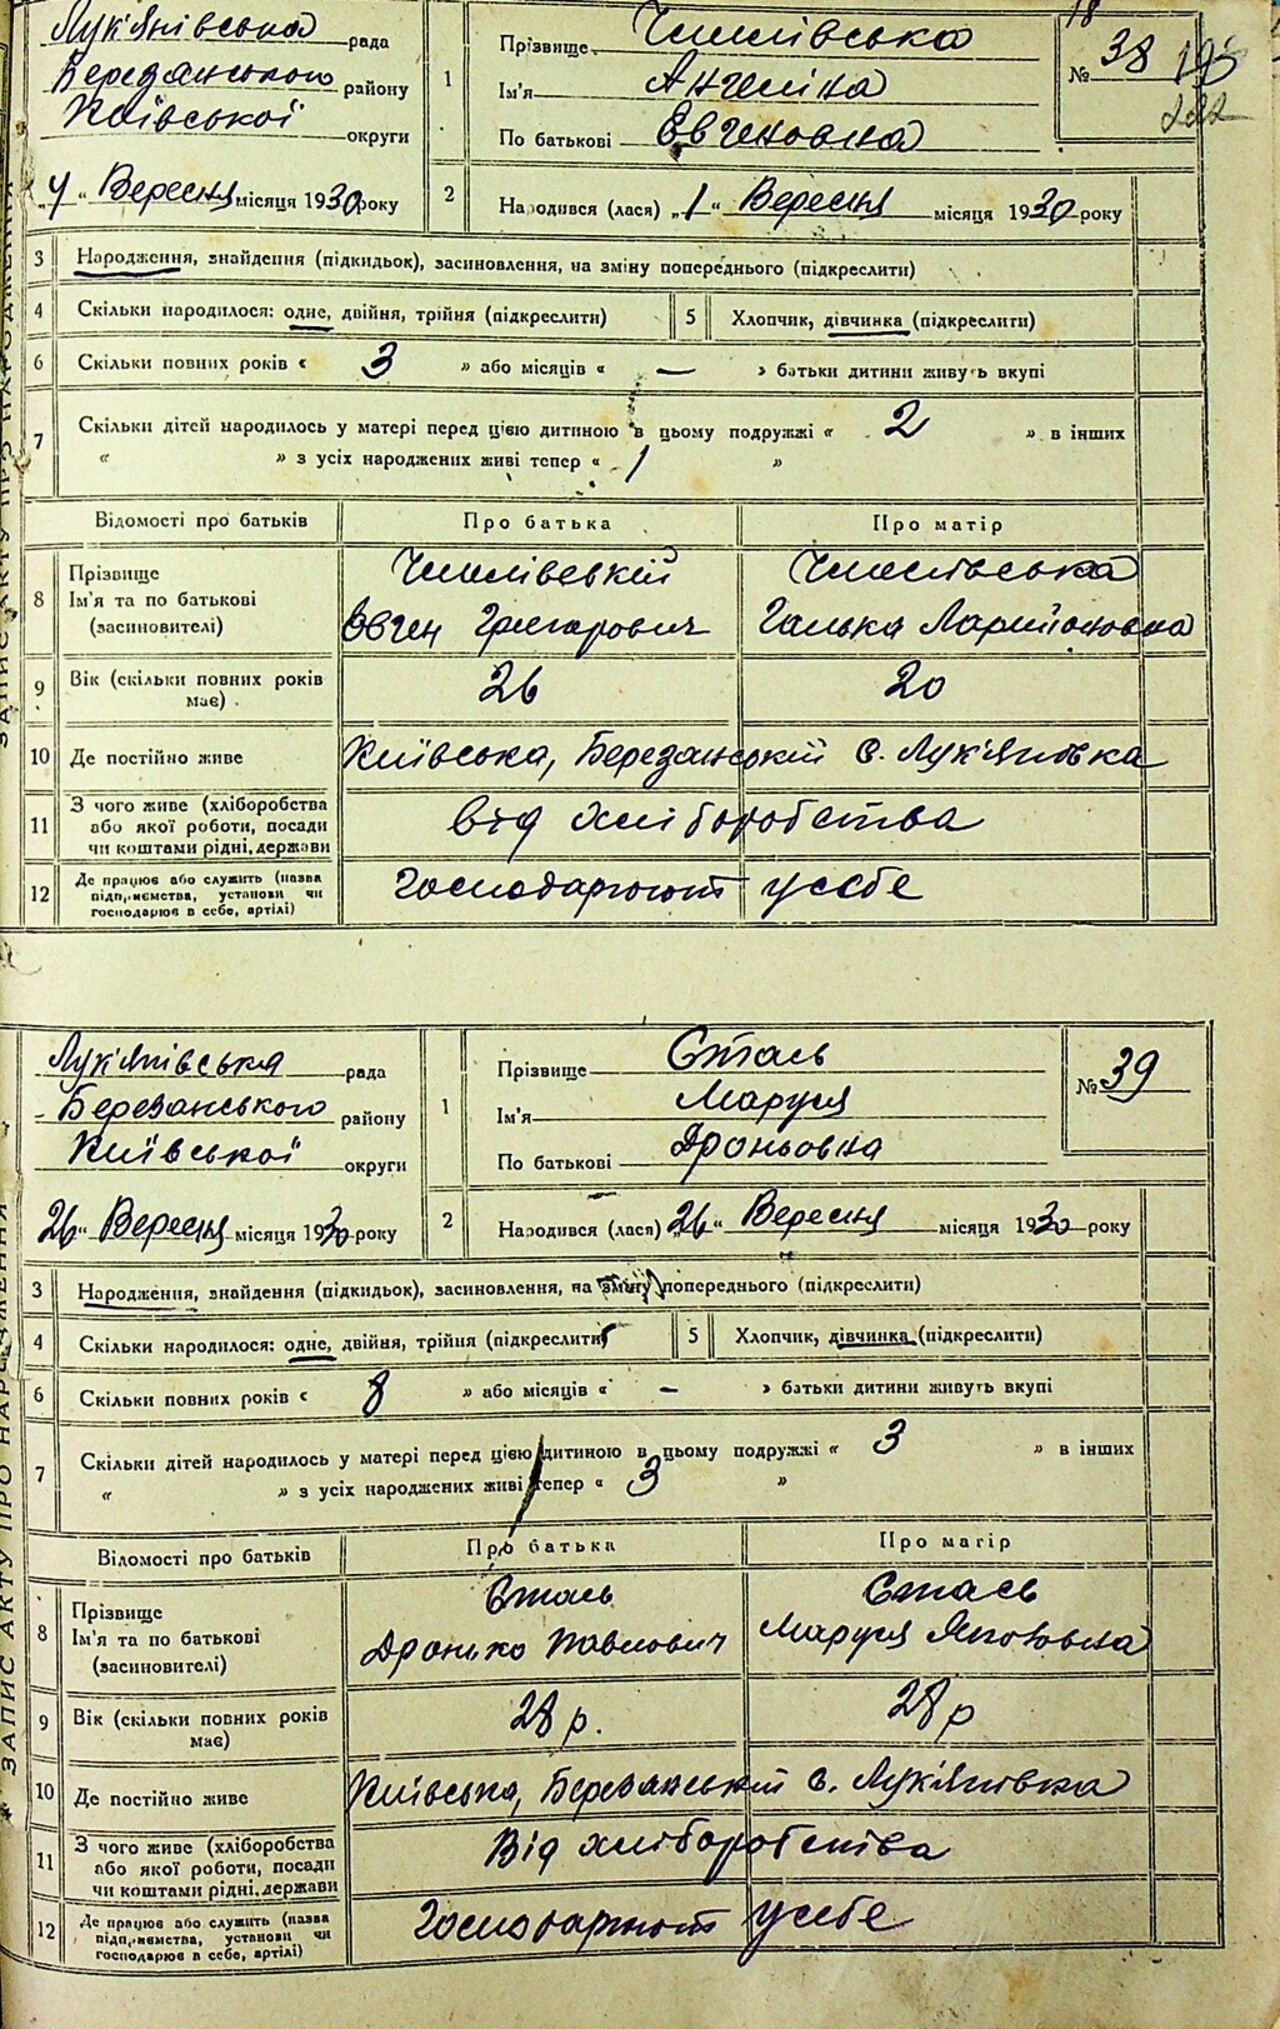 18
Лук'янівська рада
Березанського району
Київської округи
Прізвище
Ім'я Ангеліна
По батькові Євгеновна
№ 38 195
222
1
„4“ Вересня місяця 1930 року
2 Народився (лася) „1“ Вересня місяця 1930 року
3 Народження, знайдення (підкидьок), засиновлення, на зміну попереднього (підкреслити)
4 Скільки народилося: одне, двійня, трійня (підкреслити) 5 Хлопчик, дівчинка (підкреслити)
6 Скільки повних років « 3 » або місяців « — » батьки дитини живуть вкупі
7 Скільки дітей народилось у матері перед цією дитиною в цьому подружжі « 2 » в інших
« » з усіх народжених живі тепер « 1 »
Відомості про батьків Про батька Про матір
8 Прізвище
Ім'я та по батькові Євген Григорович Галька Ларийоновна
(засиновителі)
9 Вік (скільки повних років має) 26 20
10 Де постійно живе Київська, Березанський с. Лук'янівка
11 З чого живе (хліборобства
або якої роботи, посади від хліборобства
чи коштами рідні, держави
12 Де працює або служить (назва
підприємства, установи чи Господарюют у себе
господарює в себе, артілі)
ЗАПИС АКТУ ПРО НАРОДЖЕННЯ
Лук'янівська рада
Березанського району
Київської округи
1
Прізвище Стась
Ім'я Маруся
По батькові Дроньовна
№ 39
26“ Вересня місяця 1930 року
2 Народився (лася) „26“ Вересня місяця 1930 року
3 Народження, знайдення (підкидьок), засиновлення, на зміну попереднього (підкреслити)
4 Скільки народилося: одне, двійня, трійня (підкреслити) 5 Хлопчик, дівчинка (підкреслити)
6 Скільки повних років « 8 » або місяців « — » батьки дитини живуть вкупі
7 Скільки дітей народилось у матері перед цією дитиною в цьому подружжі « 3 » в інших
« » з усіх народжених живі тепер « 3 »
Відомості про батьків Про батька Про матір
8 Прізвище Стась Стась
Ім'я та по батькові Дронько Павлович Маруся
(засиновителі)
9 Вік (скільки повних років має) 28 р. 28 р
10 Де постійно живе Київська, Березанський с. Лук'янівка
11 З чого живе (хліборобства
або якої роботи, посади Від хліборобства
чи коштами рідні, держави
12 Де працює або служить (назва
підприємства, установи чи Господарюют у себе
господарює в себе, артілі)
ЗАПИС АКТУ ПРО НАРОДЖЕННЯ